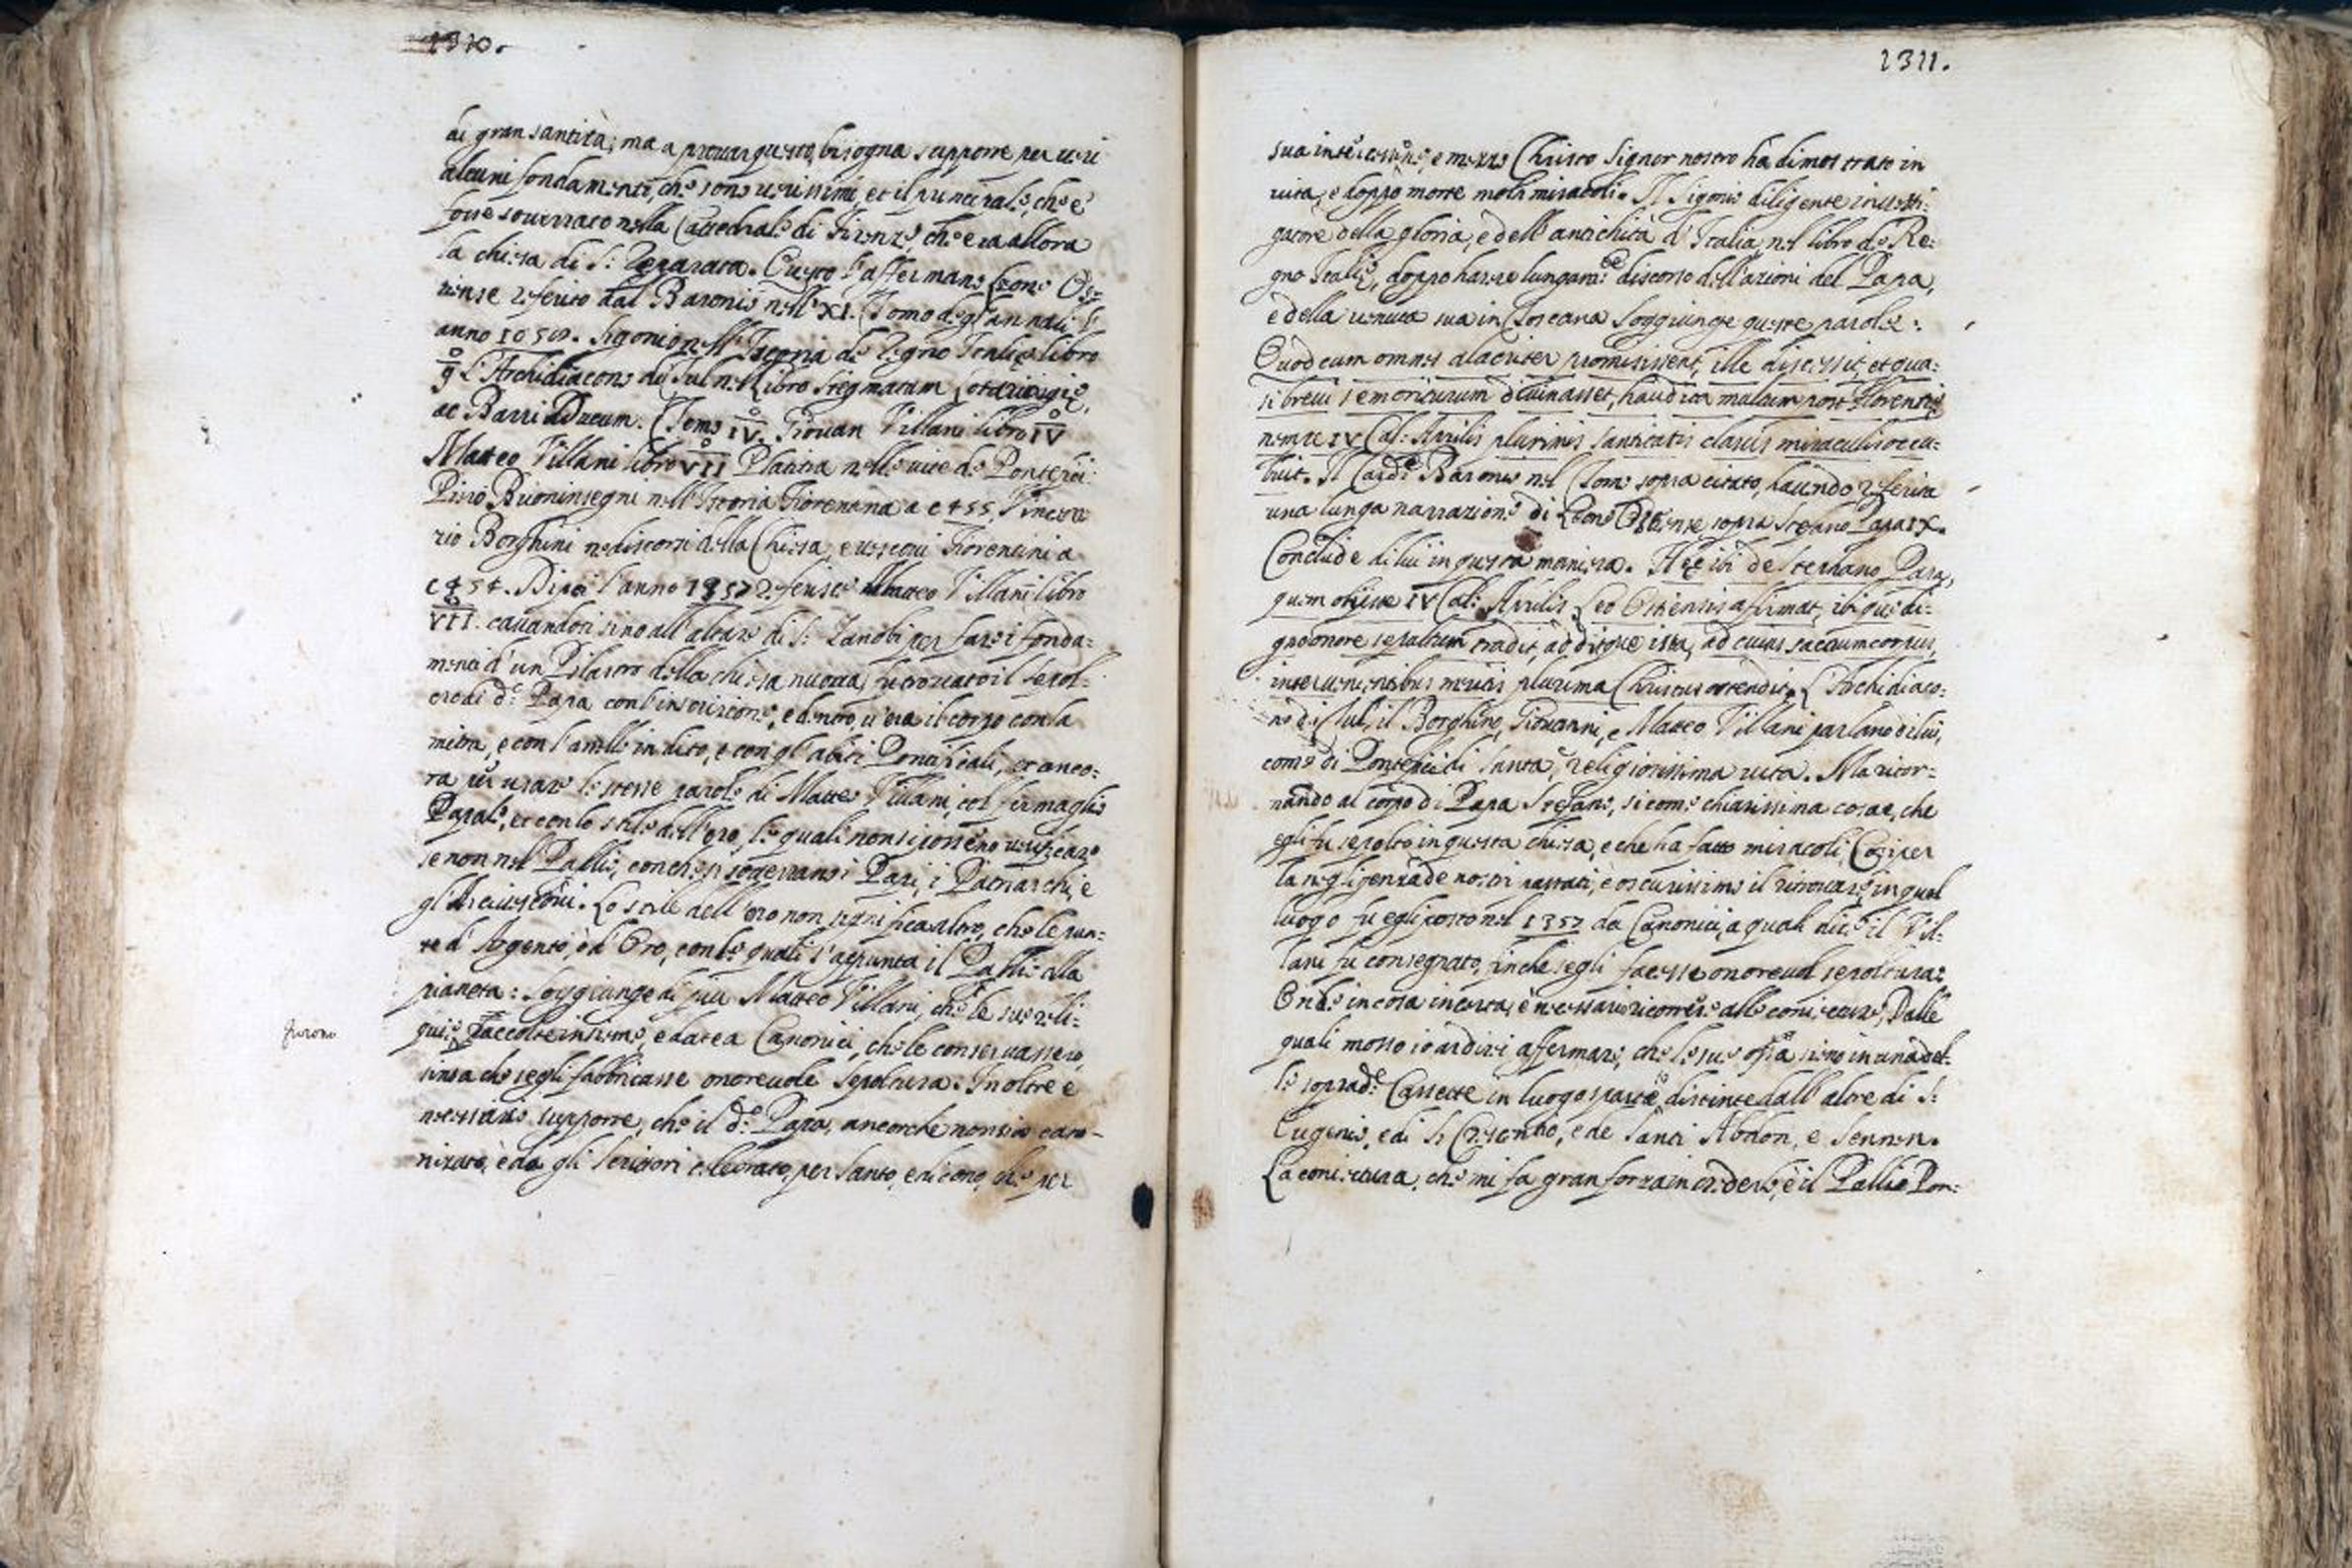 1310.
di gran santità; ma a provar questo, bisogna supporre per veri
alcuni fondamenti, che sono verissimi, et il principale, che è
fosse sotterrato nella Cattedrale di Firenze, che era allora
la chiesa di S: Reparata. Questo l'affermano Leone Os-
tiense referito dal Baronio nell'XI. Tomo degl'annali l'
anno 1058. Sigonio nell'Istoria de Regno Italię libro
9 L'Archidiacono di Tul nel Libro Stegmatum Lotaringię,
ac Barri Ducum. Tomo IV. Giovan Villani libro IV
Matteo Villani libro VII Platina nelle vite de Pontefici
Piero Buoninsegni nell'Istoria Fiorentina a c 455. Vincen
zio Borghini ne discorsi della Chiesa, e vescovi Fiorentini a
c 454. Di poi l'anno 1357 referisce Matteo Villani libro
VII. cavandosi sino all'altare di S: Zanobi per farsi i fonda-
menti d'un Pilastro della chiesa nuova, fu trovato il sepol-
cro di d: Papa con l'inscrizione, e dentro v'era il corpo con la
mitra, e con l'anello in dito, e con gl'abiti Pontificali, et anco-
ra per usare le stesse parole di Matteo Villani, col fermaglio
Papale, et con lo stile dell'oro, le quali non si possono verificare
se non nel Pallio, con che si sotterrano i Papi, i Patriarchi, e
gl'Arcivescovi. Lo stile dell'oro non significa altro, che le pun-
te d'Argento, ò d'Oro, con le quali s'appunta il Pallio alla
pianeta: Soggiunge di più Matteo Villani, che le sue reli-
quie raccolte insieme, e date a Canonici, che le conservassero,
furono
sinsa che segli fabbricasse onorevole sepoltura. Inoltre è
necessario supporre, che il d: Papa, ancorche non sia cano-
nizato, è da gli Scrittori celebrato per Santo, e dicono, che per
1311.
sua intercessione, e mezzo Christo Signor nostro hà dimostrato in
vita, e doppo morte molti miracoli. Il Sigonio diligente investi-
gatore della gloria, e dell'antichità d'Italia nel libro de Re-
gno Italię, doppo havere lungam: discorso dell'azioni del Papa,
e della venuta sua in Toscana soggiunge queste parole:
Quod cum omnes alacriter promisissent, ille discessit, et qua-
si brevi se moriturum divinasset, haud ita multum post Florentię
nempe IV Cal: Aprilis plurimis santitatis clarus miraculis occu-
buit. Il Card: Baronio nel Tomo sopra citato, havendo referita
una lunga narrazione di Leone Ostiense sopra Stefano Papa IX.
Conclude di lui in questa maniera. Hęc ibi de Stephano Papa,
quem obijsse IV Cal: Aprilis Leo Ostiensis affirmat, ibique di-
gno onore sepultum tradit, additque ista, ad cuius sacrum corpus,
intervenientibus meritis plurima Christus ostendit. L'Archidiaco-
no di Tul, il Borghino, Giovanni, e Matteo Villani parlano di lui,
come di Pontefice di Santa, e religiosissima vita. Ma ritor-
nando al corpo di Papa Stefano, si come chiarissima cosa è, che
egli fu sepolto in questa chiesa, e che ha fatto miracoli, Così per
la negligenza de nostri passati, è oscurissimo il ritrovare, in qual
luogo fu egli posto nel 1357 da Canonici, a quali dice il Vil-
lani fu consegnato, finche segli facesse onorevol sepoltura;
Onde in cosa incerta, è necessario ricorrere alle conietture, Dalle
quali mosso io ardirei affermare, che le sue ossa sieno in una del-
le soprad: Cassette in luogo sparte, distinte dall'altre di S:
Eugenio, e di S: Crescentio, e de Santi Abdon, e Sennen.
La coniettura, che mi fa gran forza in crederlo, è il Pallio Pon-